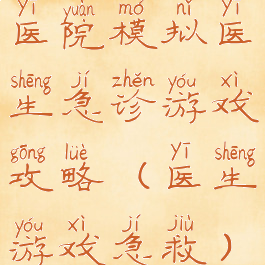 yī yuàn mó nǐ yī
医院模拟医
shēng jí zhěn yóu xì
生急诊游戏
gōng lüè yī shēng
攻略（医生
yóu xì jí jiù
游戏急救）